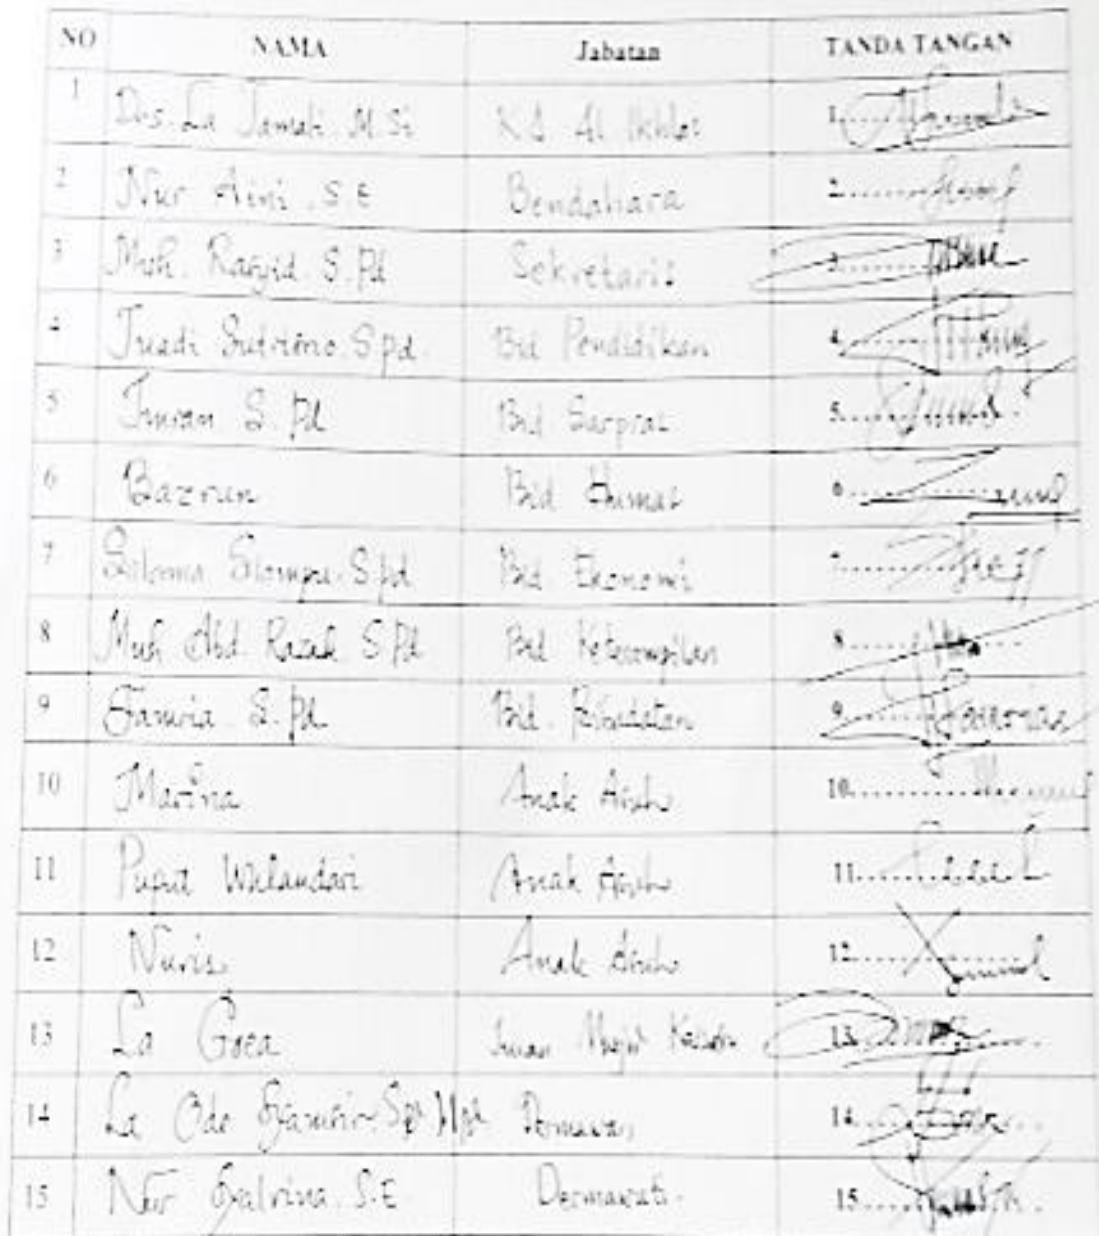 NO NAMA Jabatan TANDA TANGAN
1 Drs. La Jamali M.Si Kd Al Ikhlas 1.
2 Nur Aini. S.E Bendahara 2.
3 Muh. Rasyid. S.Pd Sekretaris 3.
4 Juadi Sutrisno. S.Pd. Bid Pendidikan 4.
5 Imran S.Pd Bid Sarpras 5.
6 Bazrun Bid Humas 6.
7 S.Pd Bid. Ekonomi 7.
8 Muh Abd. Razak S.Pd Bid Keterampilan 8.
9 S.Pd. Bid. 9.
10 Marlina Anak Asuh 10.
11 Puput Wulandari Anak Asuh 11.
12 Nuris Anak Asuh 12.
13 La Goea Imam Masjid 13.
14 La Ode S.Pd M.Pd Dermawan 14.
15 Nur S.E Dermawati. 15.